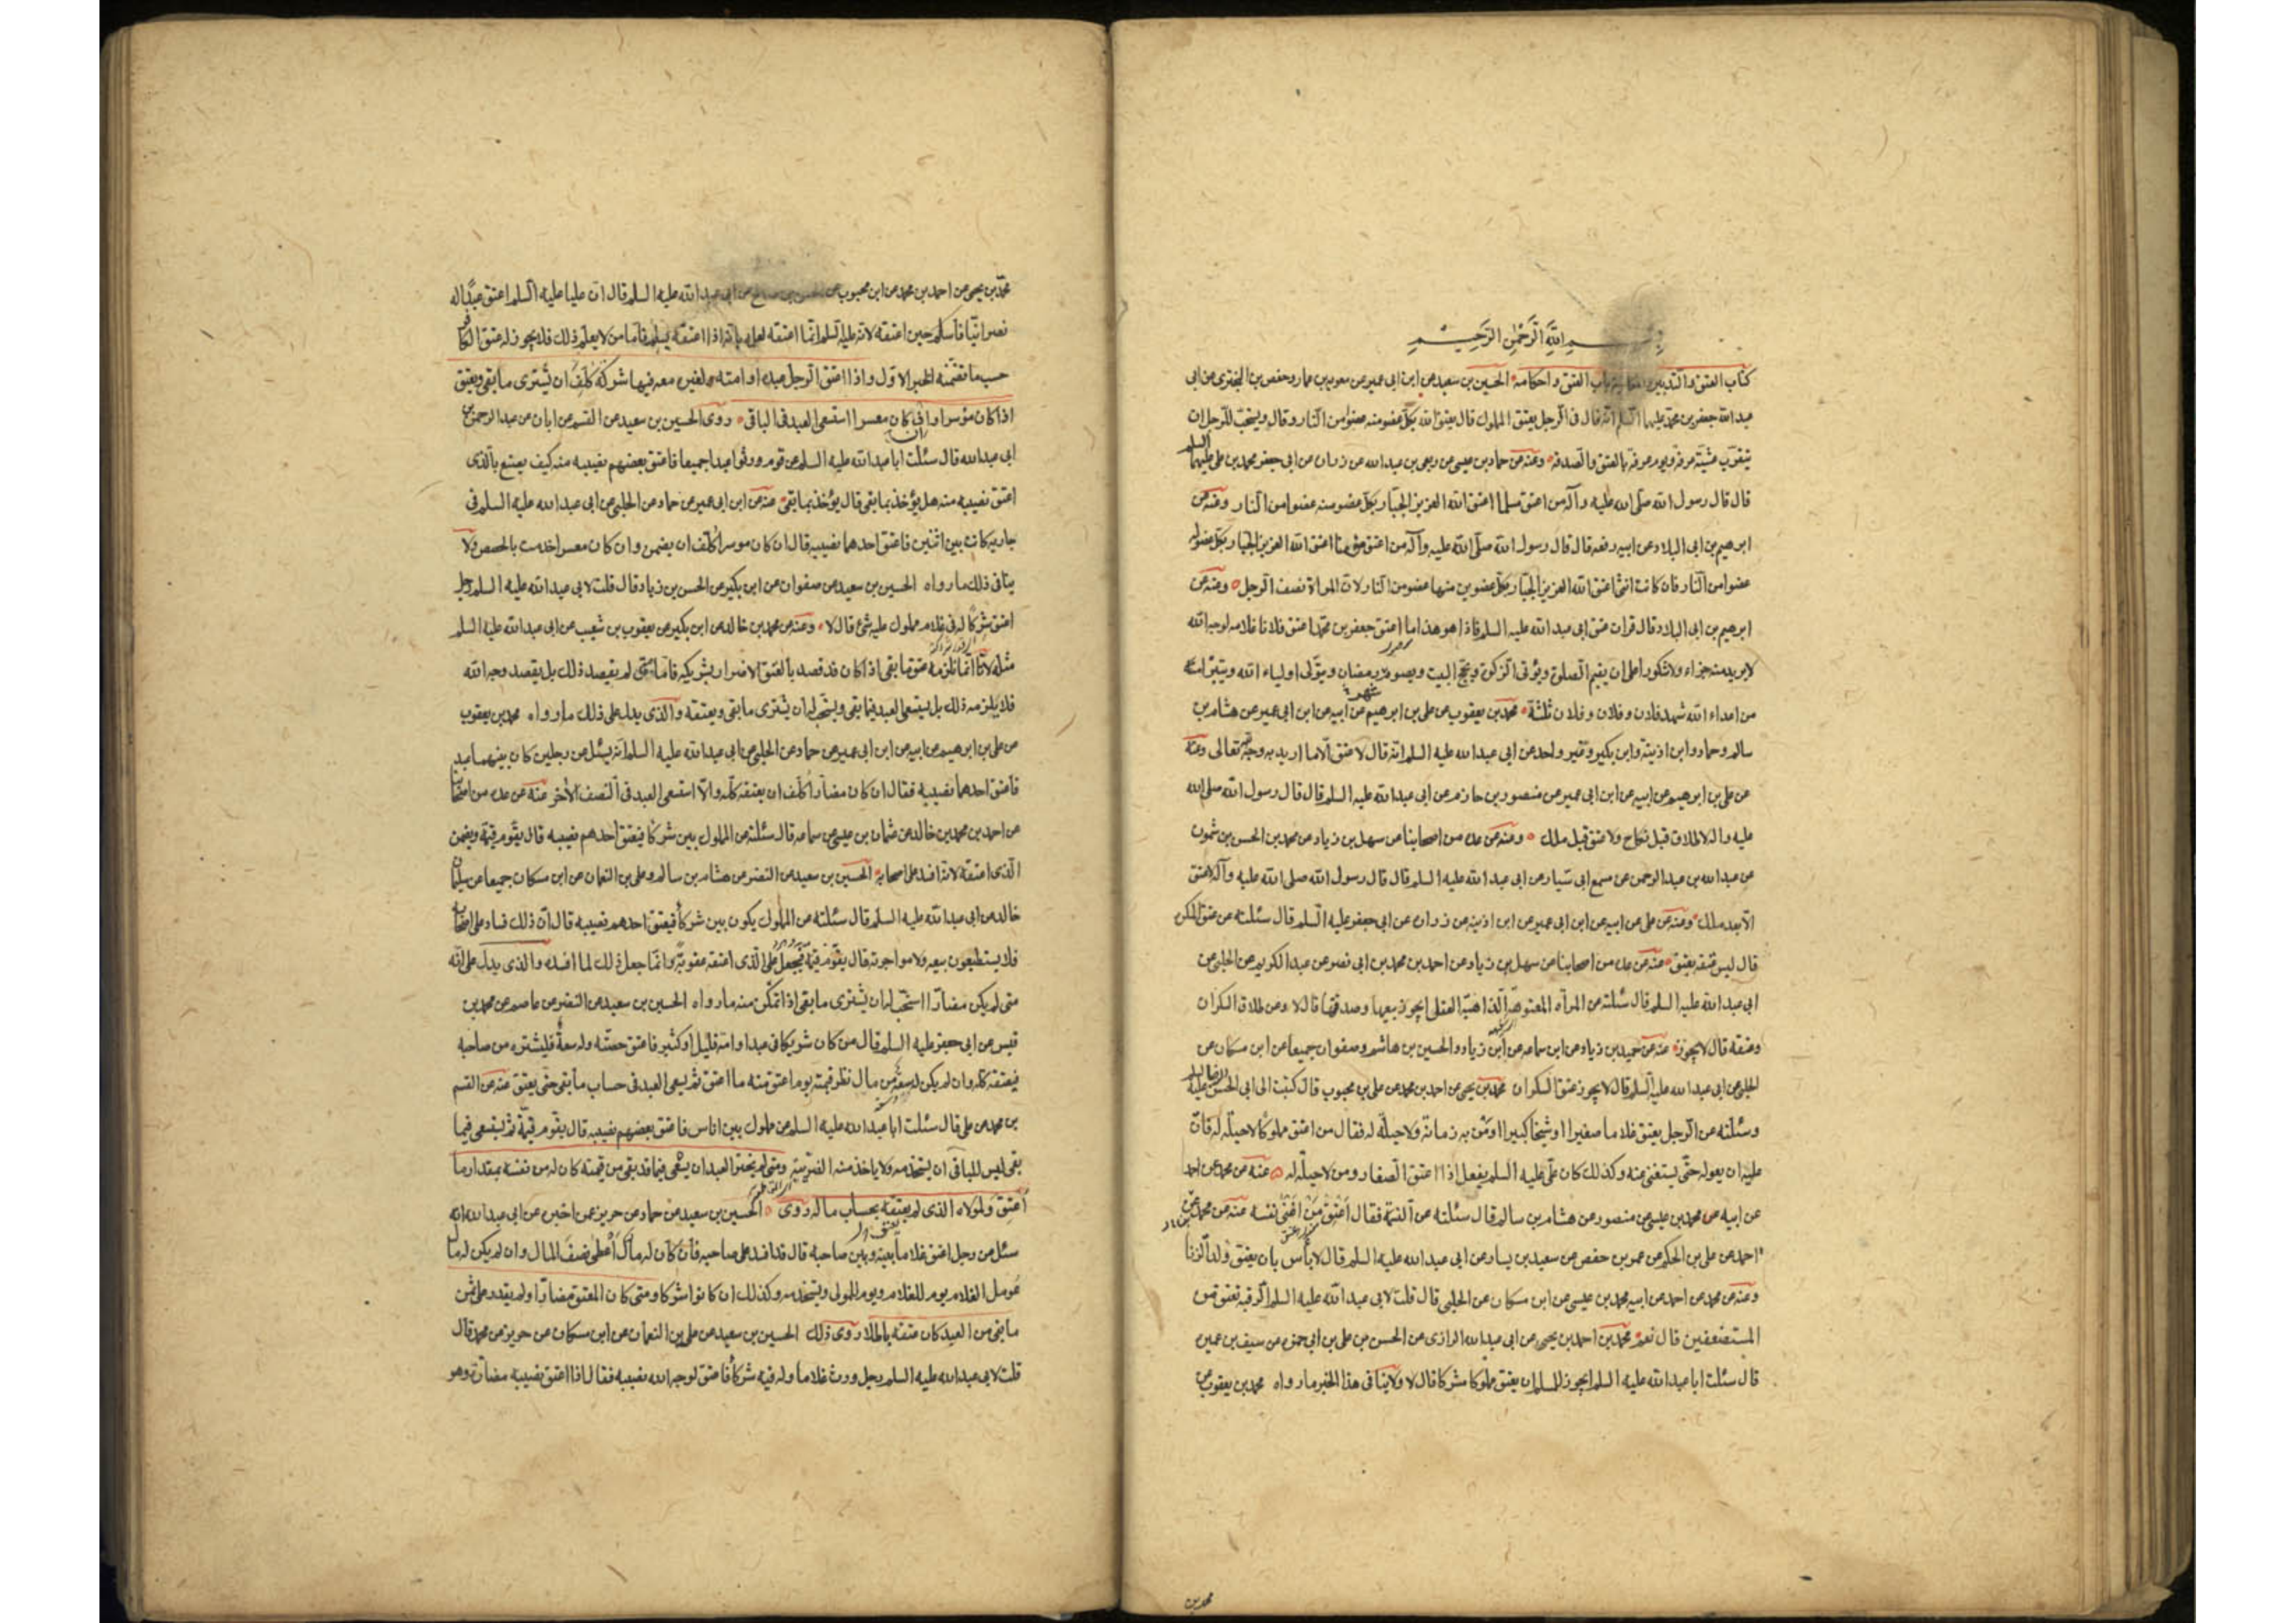 بسم الله الرحمن الرحيم
كتاب العتق والتدبير والمكاتبة باب العتق واحكامه الحسين بن سعيد عن ابن ابى عمير عن معوية بن عمار وحفص بن البخترى عن ابى
عبد الله جعفر بن محمد عليهما السلم انه قال فى الرجل يعتق المملوك قال يعتق الله بكل عضو منه عضوا من النار وقال ويستحب للرجل ان
يتقرب عشية عرفة ويوم عرفة بالعتق والصدقة وعنه عن حماد بن عيسى عن ربعى بن عبد الله عن زرارة عن ابى جعفر محمد بن على عليهما السلم
قال قال رسول الله صلى الله عليه وآله من اعتق مسلما اعتق الله العزيز الجبار بكل عضو منه عضوا من النار وعنه عن
ابرهيم بن ابى البلاد عن ابيه رفعه قال قال رسول الله صلى الله عليه وآله من اعتق مؤمنا اعتق الله العزيز الجبار بكل عضو له
عضوا من النار فان كانت انثى اعتق الله العزيز الجبار بكل عضوين منها عضو من النار لان المراة نصف الرجل وعنه عن
ابرهيم بن ابى البلاد قال قرات عتق ابى عبد الله عليه السلم فاذا هو هذا ما اعتق جعفر بن محمد اعتق فلانا غلامه لوجه الله
لا يريد منه جزاء ولا شكورا على ان يقيم الصلوة ويؤتى الزكوة ويحج البيت ويصوم شهر رمضان ويتولى اولياء الله ويتبرأ
من اعداء الله شهد فلان وفلان وفلان ثلثة محمد بن يعقوب عن على بن ابرهيم عن ابيه عن ابن ابى عمير عن هشام بن
سالم وحماد وابن اذينة وابن بكير وغير واحد عن ابى عبد الله عليه السلم انه قال لا عتق الا ما اريد به وجه الله تعالى وعنه
عن على بن ابرهيم عن ابيه عن ابن ابى عمير عن منصور بن حازم عن ابى عبد الله عليه السلم قال قال رسول الله صلى الله
عليه واله لا طلاق قبل نكاح ولا عتق قبل ملك وعنه عن عدة من اصحابنا عن سهل بن زياد عن محمد بن الحسن بن شمون
عن عبد الله بن عبد الرحمن عن مسمع ابى سيار عن ابى عبد الله عليه السلم قال قال رسول الله صلى الله عليه وآله لا عتق
الا بعد ملك وعنه عن على عن ابيه عن ابن ابى عمير عن ابن اذينة عن زرارة عن ابى جعفر عليه السلم قال سئلته عن عتق المكره
قال ليس عتقه بعتق عنه عن عدة من اصحابنا عن سهل بن زياد عن احمد بن محمد بن ابى نصر عن عبد الكريم عن الحلبى عن
ابى عبد الله عليه السلم قال سئلته عن المراه المعتوهة الذاهبة العقل ايجوز بيعها وصدقتها قال لا وعن طلاق السكران
وعتقه قال لا يجوز عنه عن حميد بن زياد عن ابن سماعة عن ابن زياد والحسين بن هاشم وصفوان جميعا عن ابن مسكان عن
الحلبى عن ابى عبد الله عليه السلم قال لا يجوز عتق السكران محمد بن يحيى عن احمد بن محمد عن على بن محبوب قال كتبت الى ابى الحسن الرضا عليه السلم
وسئلته عن الرجل يعتق غلاما صغيرا او شيخا كبيرا او من به زمانة ولا حيلة له فقال من اعتق مملوكا لا حيلة له فان
عليه ان يعوله حتى يستغنى عنه وكذلك كان على عليه السلم يفعل اذا اعتق الصغار ومن لا حيلة له عنه عن محمد عن احمد
عن ابيه عن محمد بن عيسى عن منصور عن هشام بن سالم قال سئلته عن النسمة فقال اعتق من اغنى نفسه عنه عن محمد عن
احمد عن على بن الحكم عن عمر بن حفص عن سعيد بن يسار عن ابى عبد الله عليه السلم قال لا باس بان يعتق ولد الزنا
وعنه عن محمد عن احمد عن ابيه محمد بن عيسى عن ابن مسكان عن الحلبى قال قلت لابى عبد الله عليه السلم الرقبة تعتق من
المستضعفين قال نعم محمد بن احمد بن يحيى عن ابى عبد الله الرازى عن الحسن بن على بن ابى حمزه عن سيف بن عميرة
قال سئلت ابا عبد الله عليه السلم ايجوز للمسلم ان يعتق مملوكا مشركا قال لا ولا ينافى هذا الخبر ما رواه محمد بن يعقوب عن
محمد بن
محمد بن يحيى عن احمد بن محمد عن ابن محبوب عن الحسن بن صالح عن ابى عبد الله عليه السلم قال ان عليا عليه السلم اعتق عبدا له
نصرانيا فاسلم حين اعتقه لانه عليه السلم انما اعتقه لعلمه بانه اذا اعتقه يسلم فاما من لا يعلم ذلك فلا يجوز له عتق الكافر
حسب ما تضمنه الخبر الاول واذا اعتق الرجل عبده او امته ولغيره معه فيها شركة كلف ان يشترى ما بقى ويعتق
اذا كان موسرا وان كان معسرا استسعى العبد فى الباقى روى الحسين بن سعيد عن القسم عن ابان عن عبد الرحمن بن
ابى عبد الله قال سئلت ابا عبد الله عليه السلم عن قوم ورثوا عبدا جميعا فاعتق بعضهم نصيبه منه كيف يصنع بالذى
اعتق نصيبه منه هل يؤخذ بما بقى قال يؤخذ بما بقى عنه عن ابن ابى عمير عن حماد عن الحلبى عن ابى عبد الله عليه السلم فى
جارية كانت بين اثنين فاعتق احدهما نصيبه قال ان كان موسرا كلف ان يضمن وان كان معسرا خدمت بالحصص ولا
ينافى ذلك ما رواه الحسين بن سعيد عن صفوان عن ابن بكير عن الحسن بن زياد قال قلت لابى عبد الله عليه السلم رجل
اعتق شركا له فى غلام مملوك عليه شئ قال لا وعنه عن محمد بن خالد عن ابن بكير عن يعقوب بن شعيب عن ابى عبد الله عليه السلم
مثله لانا انما نلزمه عتق ما بقى اذا كان قد قصد بالعتق الاضرار بشريكه فاما متى لم يقصد ذلك بل يقصد وجه الله
فلا يلزمه ذلك بل يستسعى العبد فيما بقى ويستحب له ان يشترى ما بقى ويعتقه والذى يدل على ذلك ما رواه محمد بن يعقوب
عن على بن ابرهيم عن ابيه عن ابن ابى عمير عن حماد عن الحلبى عن ابى عبد الله عليه السلم انه سئل عن رجلين كان بينهما عبد
فاعتق احدهما نصيبه فقال ان كان مضارا كلف ان يعتقه كله والا استسعى العبد فى النصف الاخر عنه عن عدة من اصحابنا
عن احمد بن محمد بن خالد عن عثمان بن عيسى عن سماعة قال سئلته عن المملوك بين شركا فيعتق احدهم نصيبه قال يقوم قيمة ويضمن
الذى اعتقه لانه افسده على اصحابه الحسين بن سعيد عن النضر عن هشام بن سالم وعلى بن النعمان عن ابن مسكان جميعا عن سليمان بن
خالد عن ابى عبد الله عليه السلم قال سئلته عن المملوك يكون بين شركا فيعتق احدهم نصيبه قال ان ذلك فساد على اصحابه
فلا يستطيعون بيعه ولا مواجرته قال يقوم قيمة فيجعل على الذى اعتقه عقوبة وانما جعل ذلك لما افسده والذى يدل على انه
متى لم يكن مضارا استحب له ان يشترى ما بقى اذا تمكن منه ما رواه الحسين بن سعيد عن النضر عن عاصم عن محمد بن
قيس عن ابى جعفر عليه السلم قال من كان شريكا فى عبد او امة قليل او كثير فاعتق حصته وله سعة فليشتره من صاحبه
فيعتقه كله وان لم يكن له سعة من مال نظر قيمته يوم اعتق منه ما اعتق ثم يسعى العبد فى حساب ما بقى حتى يعتق عنه عن القسم
بن محمد عن على قال سئلت ابا عبد الله عليه السلم عن مملوك بين اناس فاعتق بعضهم نصيبه قال يقوم قيمة ثم يستسعى فيما
بقى ليس للباقى ان يستخدمه ولا ياخذ منه الضريبة ومتى لم يختر العبد ان يسعى فيما قد بقى من قيمته كان له من نفسه بمقدار ما
اعتق ولمولاه الذى لم يعتقه بحساب ماله روى الحسين بن سعيد عن حماد عن حريز عمن اخبره عن ابى عبد الله انه
سئل عن رجل اعتق غلاما بينه وبين صاحبه قال قد افسد على صاحبه فان كان له مال اعطى نصف المال وان لم يكن له مال
عومل الغلام يوم للغلام ويوم للمولى ويستخدمه وكذلك ان كانوا شركا ومتى كان المعتق مضارا ولم يقدر على ثمن
ما بقى من العبد كان عتقه باطلا روى ذلك الحسين بن سعيد عن على بن النعمان عن ابن مسكان عن حريز عن محمد قال
قلت لابى عبد الله عليه السلم رجل ورث غلاما وله فيه شركا فاعتق لوجه الله نصيبه فقال اذا اعتق نصيبه مضارة وهو